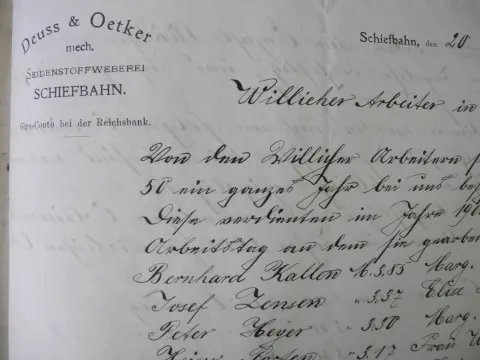 Deuss & Oetker
mech.
SEIDENSTOFFWEBEREI
SCHIEFBAHN.
Giro-Conto bei der Reichsbank.
Schiefbahn, den 20.
Willicher Arbeiter in
Von den Willicher Arbeitern
50 ein ganzes Jahr bei uns
Diese verdienten im Jahre
Arbeitstag an dem sie
Bernhard Kallen M. 3,85 Marg.
Josef Jensen " 3,37 Elise
Peter Heyer " 3,30 Marg.
" 3,17 Frau